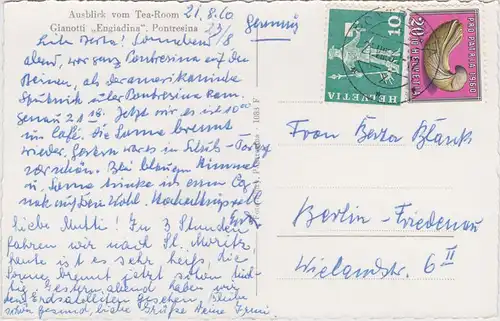 Ausblick vom Tea-Room
Gianotti „Engiadina", Pontresina
21.8.60
Liebe Berta! Sonnabend
abend, war ganz Pontresina auf den
Beinen, als der amerikanische
Sputnik über Pontresina kam.
Genau 21 18. Jetzt wo es ist 10
im Café. Die Sonne brennt
wieder. Gestern war es in Schuls-Tarasp
sehr schön. Bei blauem Himmel
u. Sonne trinke ich einen Cog
nak auf Dein Wohl.
Liebe Mutti! In 3 Stunden
fahren wir nach St. Moritz,
heute ist es sehr heiß, die
Sonne brennt jetzt schon tüch
tig. Gestern abend haben wir
den Erdsatelliten gesehen. Bleibe
schön gesund, liebe Grüße Deine Irmi
1083 F
HELVETIA
10
PRO PATRIA 1960
20+10
HELVETIA
Frau Berta Blank
Berlin-Friedenau
Wielandstr. 6 II